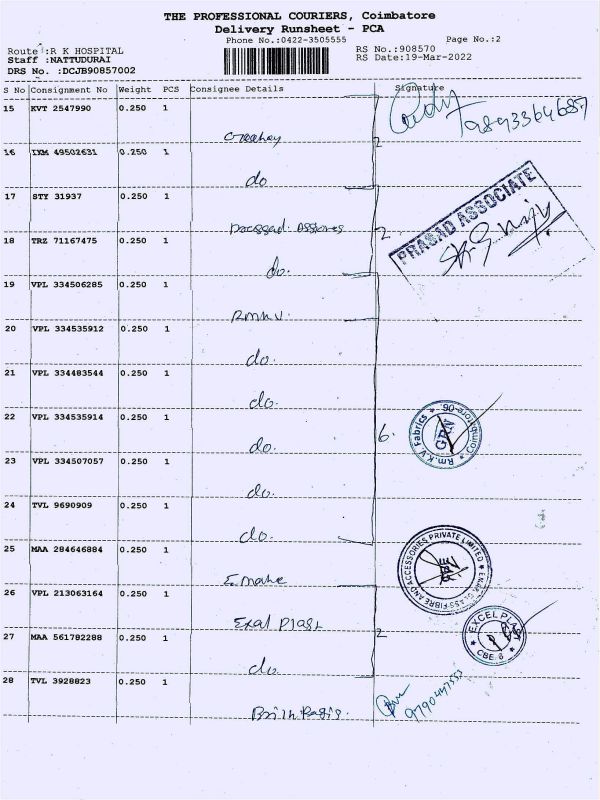 THE PROFESSIONAL COURIERS, Coimbatore
Delivery Runsheet - PCA
Phone No.:0422-3505555
Page No.:2
Route :R K HOSPITAL
Staff :NATTUDURAI
DRS No. :DCJB90857002
RS No.:908570
RS Date:19-Mar-2022
S No Consignment No Weight PCS Consignee Details Signature
15 KVT 2547990 0.250 1
16 IXM 49502631 0.250 1
2
do
17 STY 31937 0.250 1
PRASAD ASSOCIATE
18 TRZ 71167475 0.250 1
2
do.
19 VPL 334506285 0.250 1
Rmkv.
20 VPL 334535912 0.250 1
do.
21 VPL 334483544 0.250 1
do.
22 VPL 334535914 0.250 1
do.
6.
Rm.K.V Fabrics * Coimbatore-06. *
GRN
23 VPL 334507057 0.250 1
do.
24 TVL 9690909 0.250 1
do.
25 MAA 284646884 0.250 1
GLASS-FIBRE AND ACCESSORIES PRIVATE LIMITED
26 VPL 213063164 0.250 1
Exal Plast
27 MAA 561782288 0.250 1
2
do.
EXCEL PLAST
CBE-6
28 TVL 3928823 0.250 1